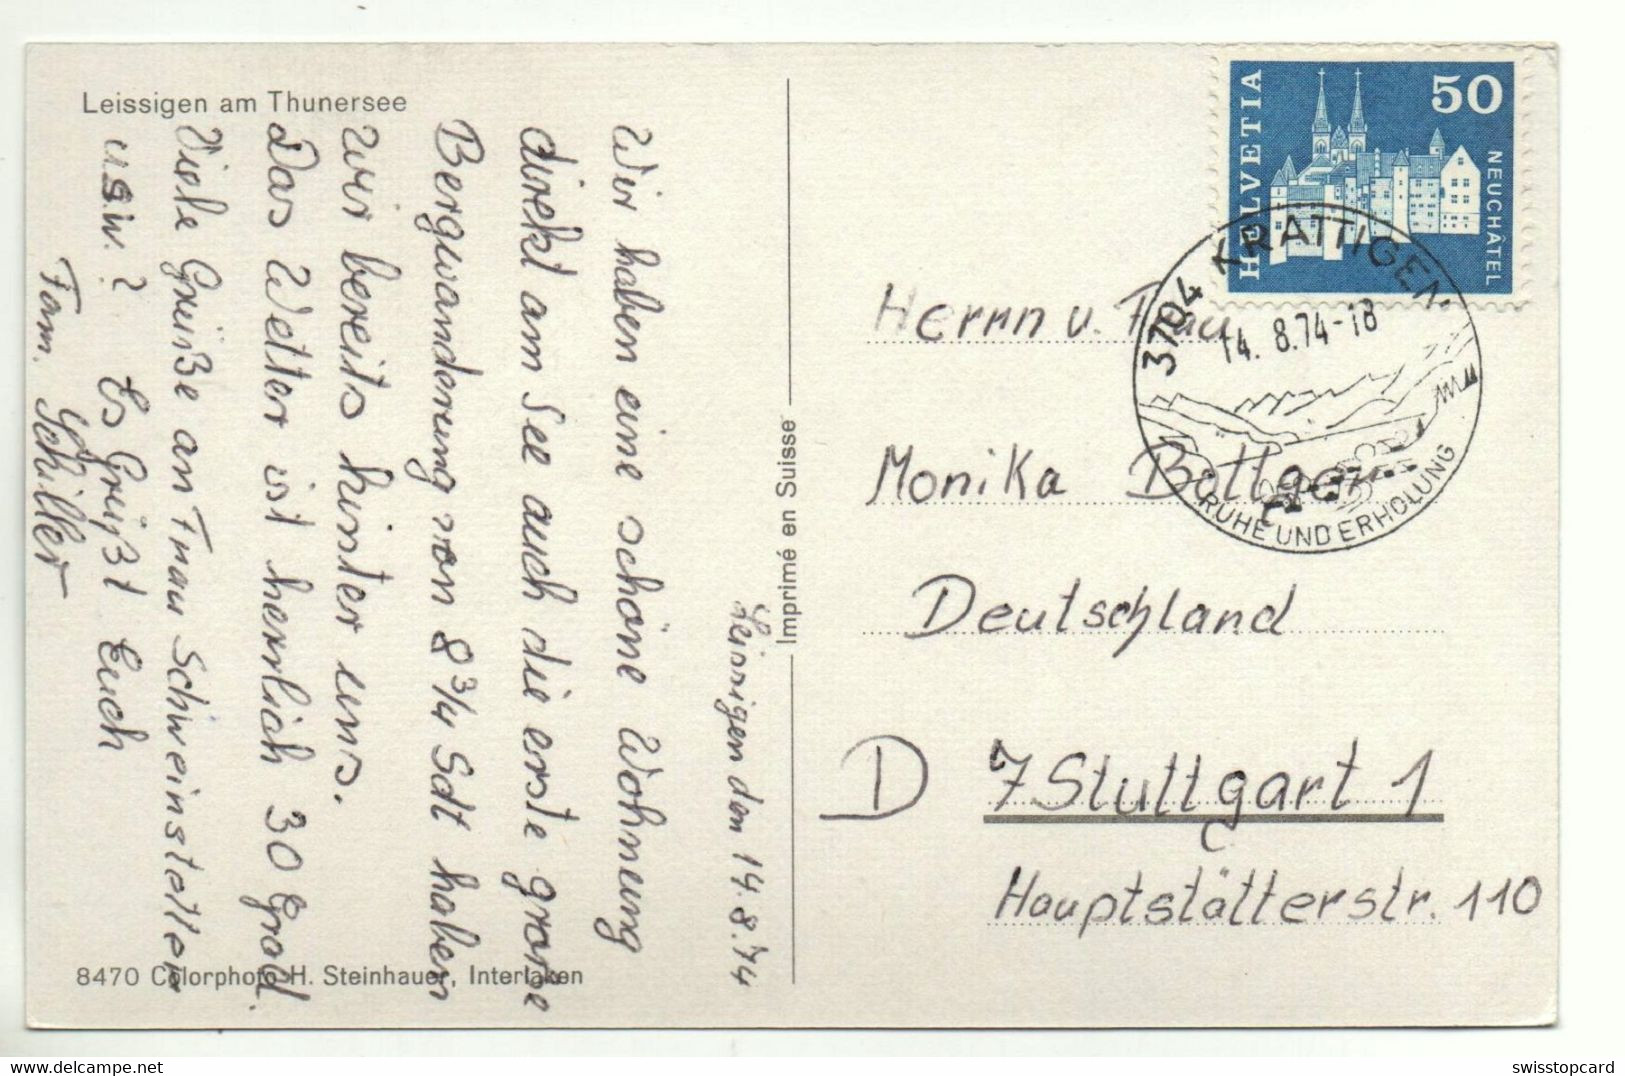 Leissigen am Thunersee
Leissigen den 14.8.74
Wir haben eine schöne Wohnung
direkt am See auch die erste große
Bergwanderung von 8 3/4 Sdt haben
wir bereits hinter uns.
Das Wetter ist herrlich 30 Grad.
Viele Grüße an Frau Schweinstetter
usw.? Es Grüßt Euch
Fam. Schiller
8470 Colorphoto H. Steinhauer, Interlaken
Imprimé en Suisse
HELVETIA
50
NEUCHÂTEL
3704 KRATTIGEN
14. 8.74-18
RUHE UND ERHOLUNG
Herrn u. Frau
Monika
Deutschland
D 7 Stuttgart 1
Hauptstätterstr. 110
swisstopcard